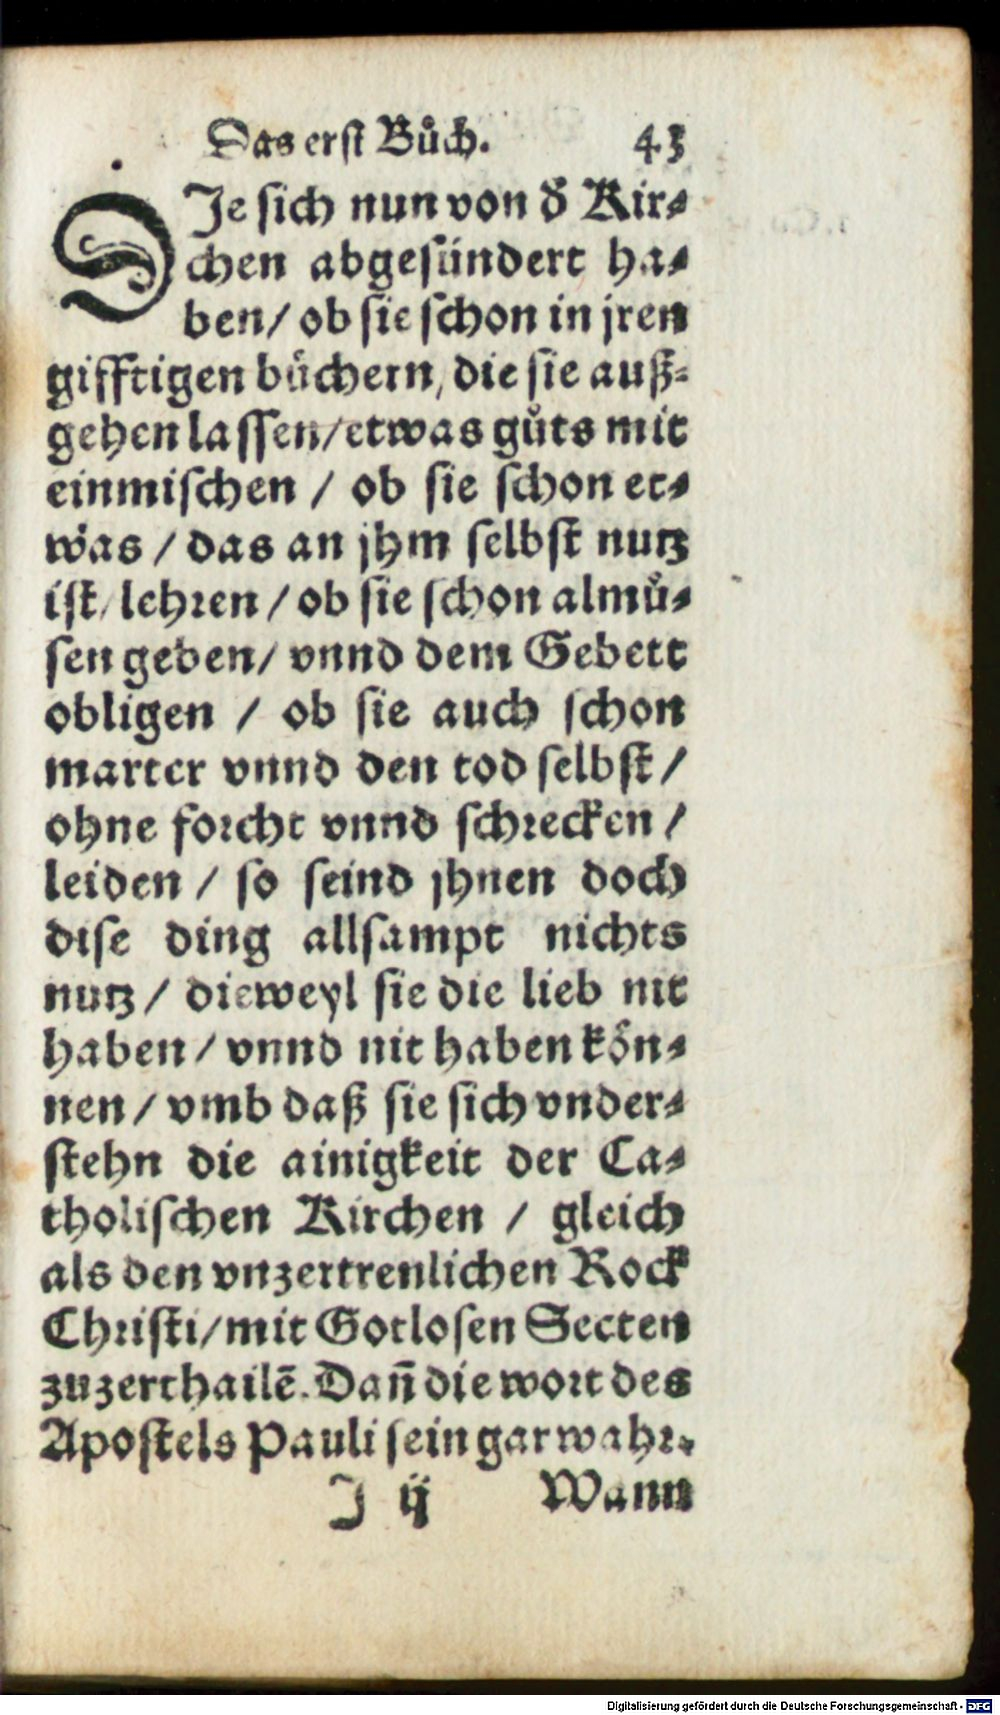 Das erst Bůch. 43
DIe sich nun von d̕ Kir⸗
chen abgesündert ha⸗
ben/ ob sie schon in jren
gifftigen bůchern, die sie auß⸗
gehen lassen/etwas gůts mit
einmischen / ob sie schon et⸗
was / das an jhm selbst nutz
ist/ lehren / ob sie schon almů⸗
sen geben/ vnnd dem Gebett
obligen / ob sie auch schon
marter vnnd den tod selbst /
ohne forcht vnnd schrecken /
leiden / so seind jhnen doch
dise ding allsampt nichts
nutz / dieweyl sie die lieb nit
haben / vnnd nit haben kön⸗
nen / vmb daß sie sich vnder⸗
stehn die ainigkeit der Ca⸗
tholischen Kirchen / gleich
als den vnzertrenlichen Rock
Christi/mit Gotlosen Secten
zuzerthailē. Dan̄ die wort des
Apostels Pauli sein gar wahr.
J ij Wann
Digitalisierung gefördert durch die Deutsche Forschungsgemeinschaft - DFG